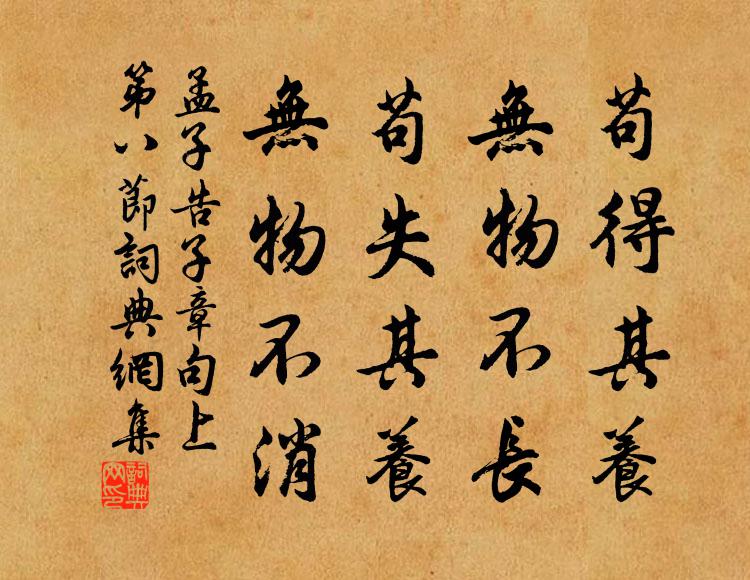 苟得其養
無物不長
苟失其養
無物不消
孟子告子章句上
第八節詞典網集
詞典網印